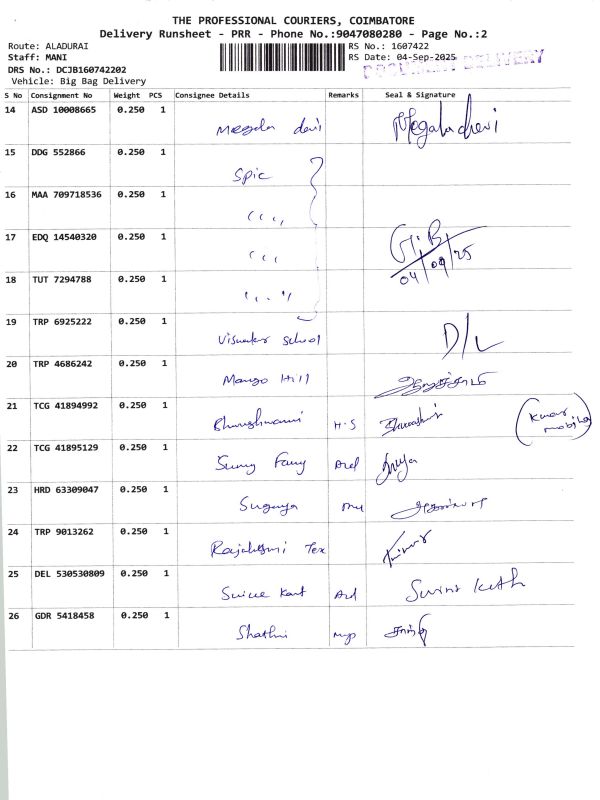 THE PROFESSIONAL COURIERS, COIMBATORE
Delivery Runsheet - PRR - Phone No.:9047080280 - Page No.:2
Route: ALADURAI RS No.: 1607422
Staff: MANI RS Date: 04-Sep-2025
DOCUMENT DELIVERY
DRS No.: DCJB160742202
Vehicle: Big Bag Delivery
S No Consignment No Weight PCS Consignee Details Remarks Seal & Signature
14 ASD 10008665 0.250 1 Megala devi Megaladevi
15 DDG 552866 0.250 1 Spic
16 MAA 709718536 0.250 1 " "
17 EDQ 14540320 0.250 1 " 04/09/25
18 TUT 7294788 0.250 1 " "
19 TRP 6925222 0.250 1 School D/L
20 TRP 4686242 0.250 1 Mango Hill
21 TCG 41894992 0.250 1 H.S (Kumar mobile)
22 TCG 41895129 0.250 1
23 HRD 63309047 0.250 1 Suganya
24 TRP 9013262 0.250 1 Tex
25 DEL 530530809 0.250 1 Kant
26 GDR 5418458 0.250 1 Shathi